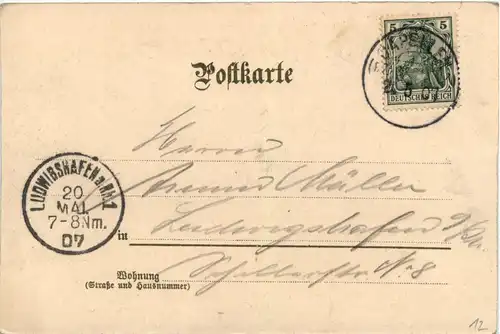 5 5
DEUTSCHES REICH
Postkarte
Herrn
Müller
LUDWIGSHAFEN a. Rh. 1
20
MAI
7-8 Nm.
07
in Ludwigshafen a/Rh.
Schillerstr. N. 8
Wohnung
(Straße und Hausnummer)
12